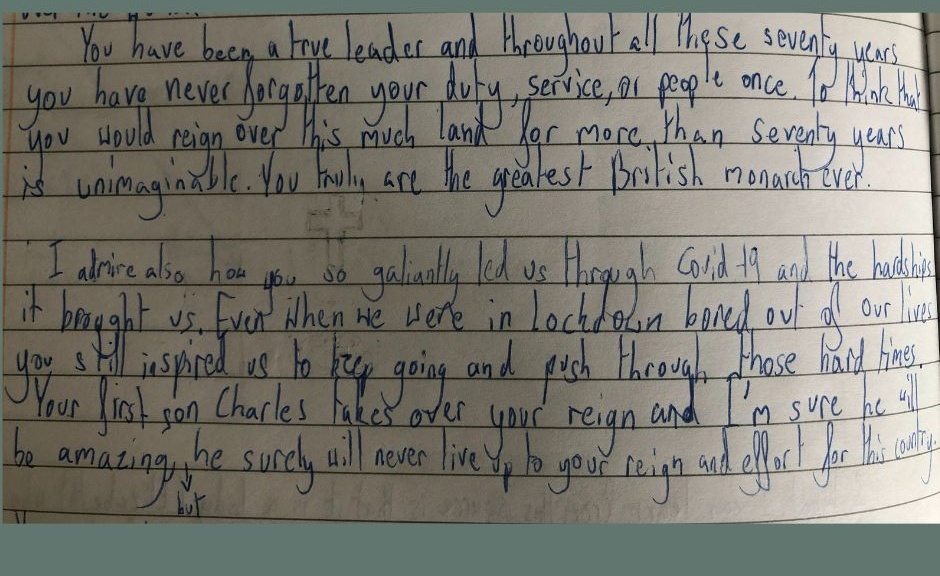 You have been a true leader and throughout all these seventy years
you have never forgotten your duty, service, or people once. To think that
you would reign over this much land for more than seventy years
is unimaginable. You truly are the greatest British monarch ever.
I admire also how you so galiantly led us through Covid 19 and the hardships
it brought us. Even when we were in lockdown bored out of our lives
you still inspired us to keep going and push through those hard times.
Your first son Charles takes over your reign and I'm sure he will
be amazing, he surely will never live up to your reign and effort for this country.
but